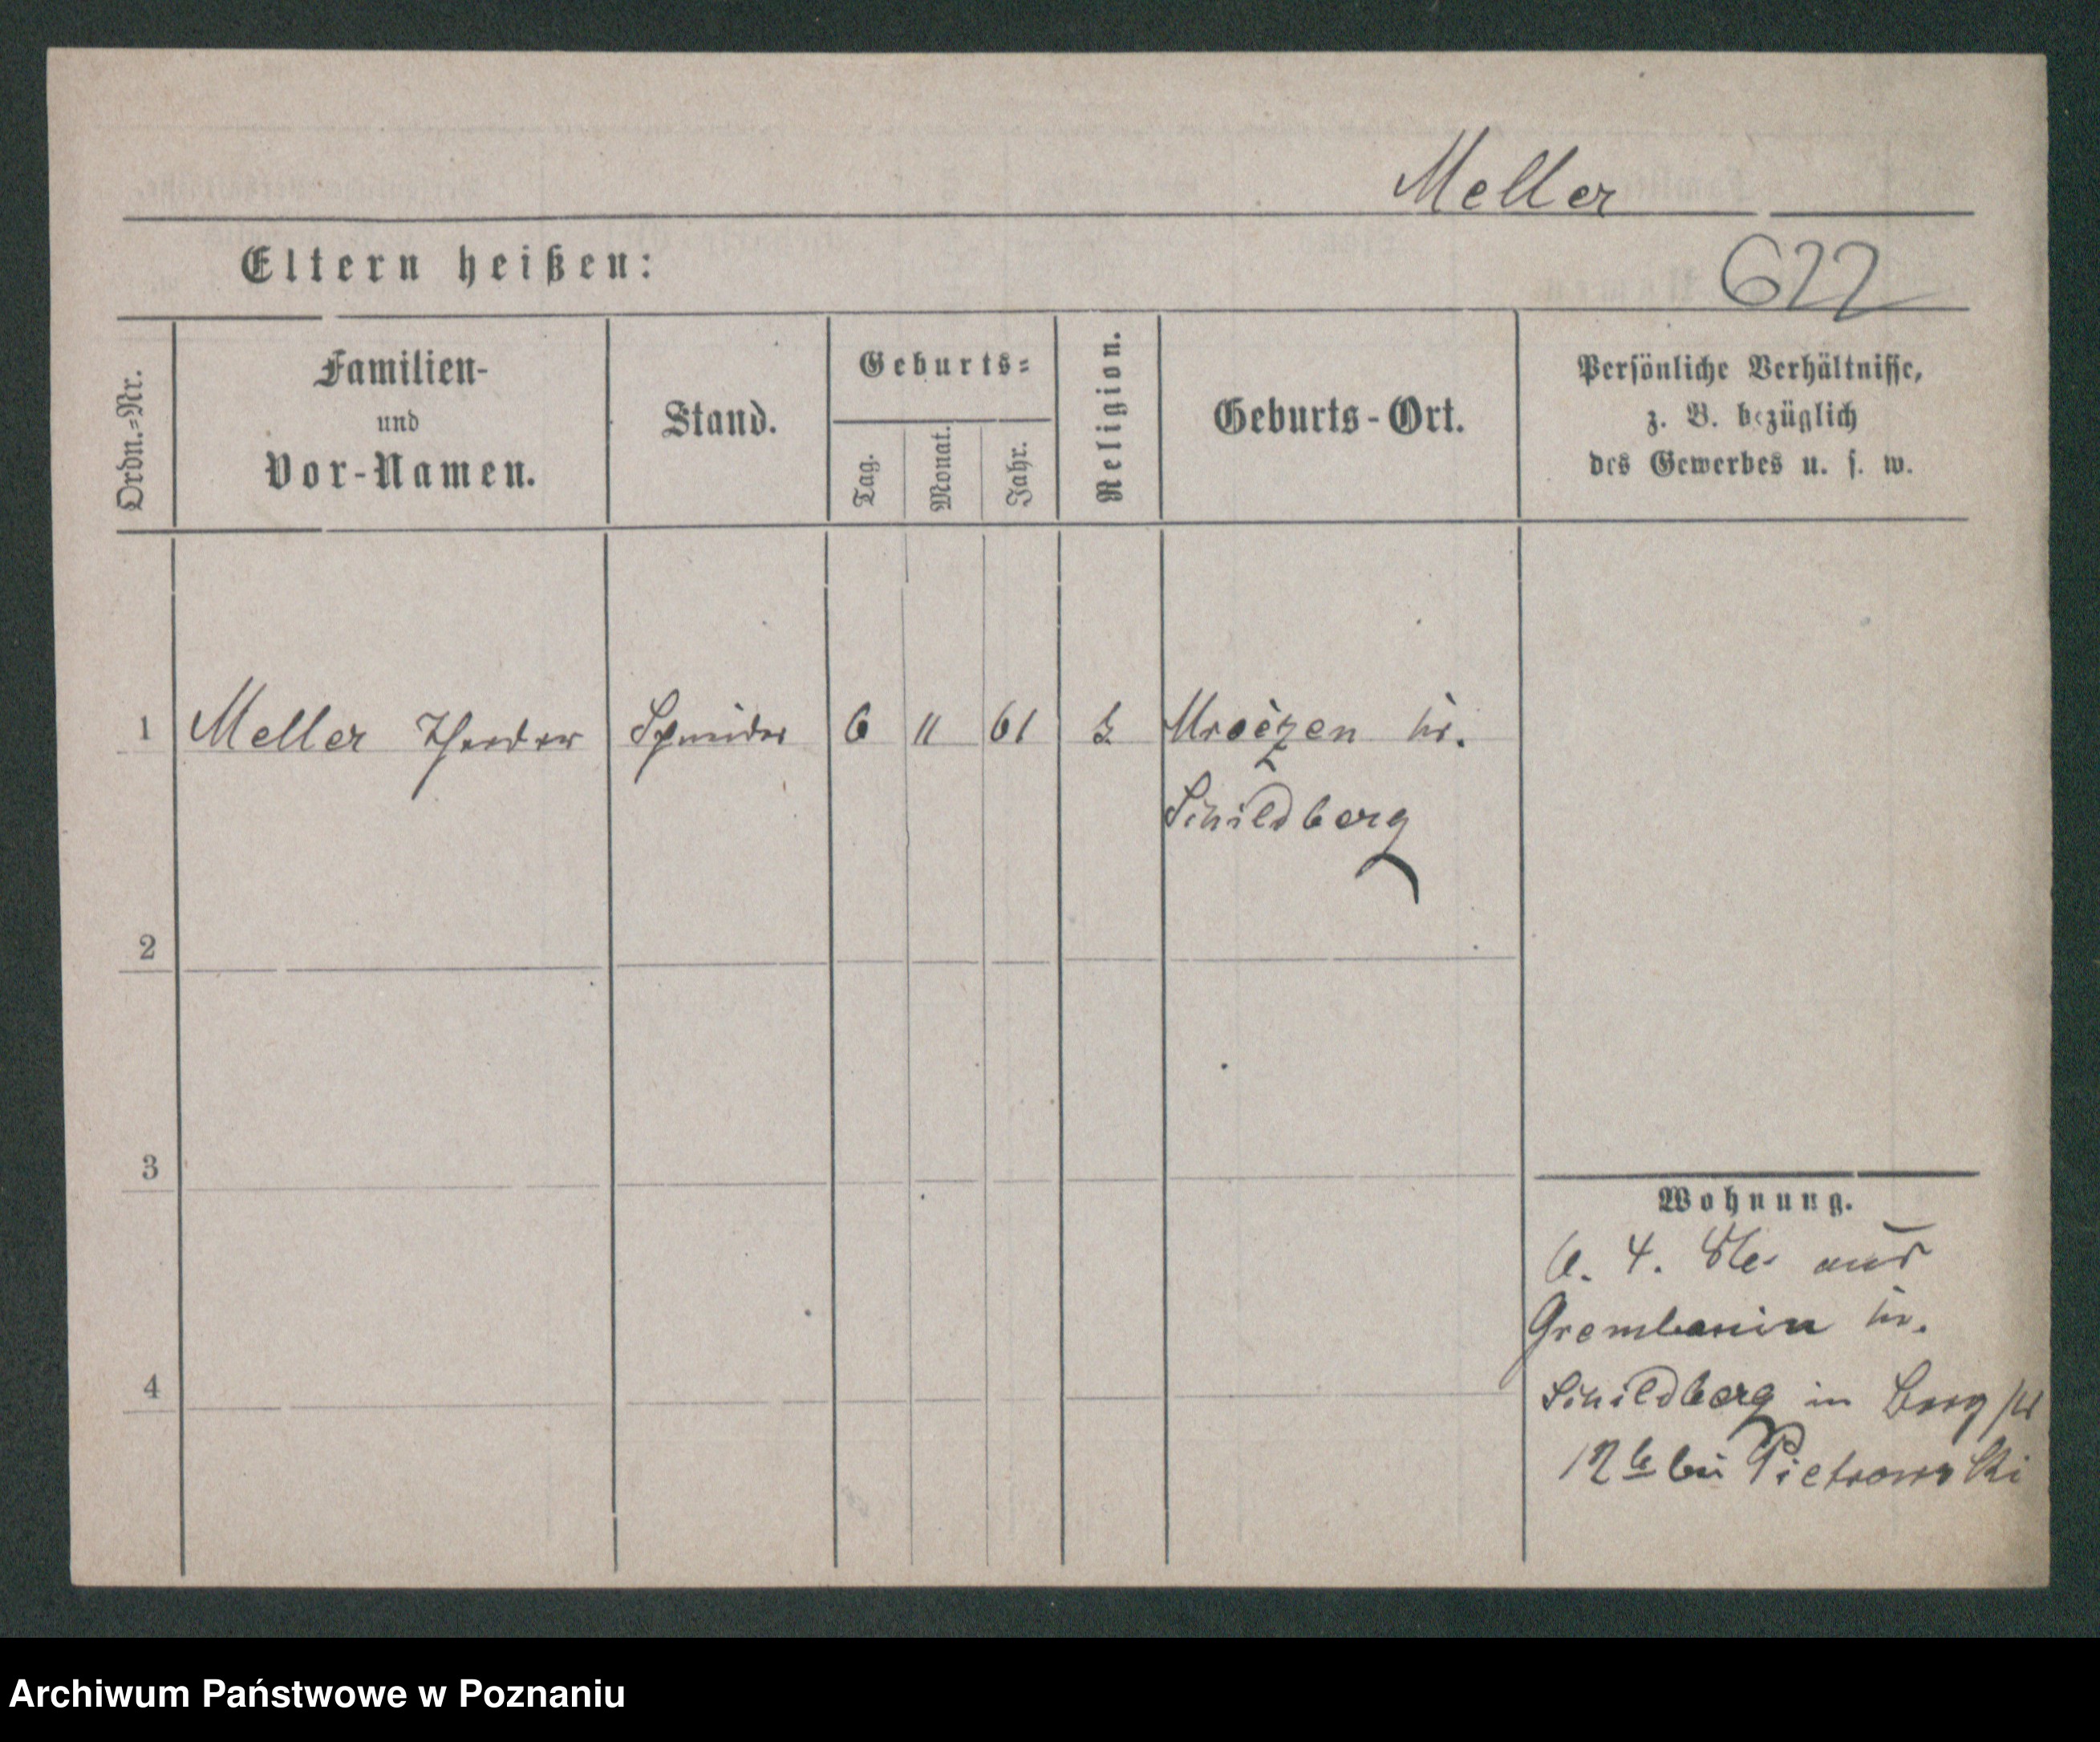 Meller
Eltern heißen:
622
Ordn.=Nr.
Familien-
und
Vor-Namen.
Stand.
Geburts=
Tag.
Monat.
Jahr.
Religion.
Geburts-Ort.
Persönliche Verhältnisse,
z. B. bezüglich
des Gewerbes u. s. w.
1 Meller Theodor Schneider 6 11 61 Kr.
Schildberg
2
3
4
Wohnung.
6. 4. aus
Grembanin Kr.
Schildberg in
12 bei Pietrowski
Archiwum Państwowe w Poznaniu